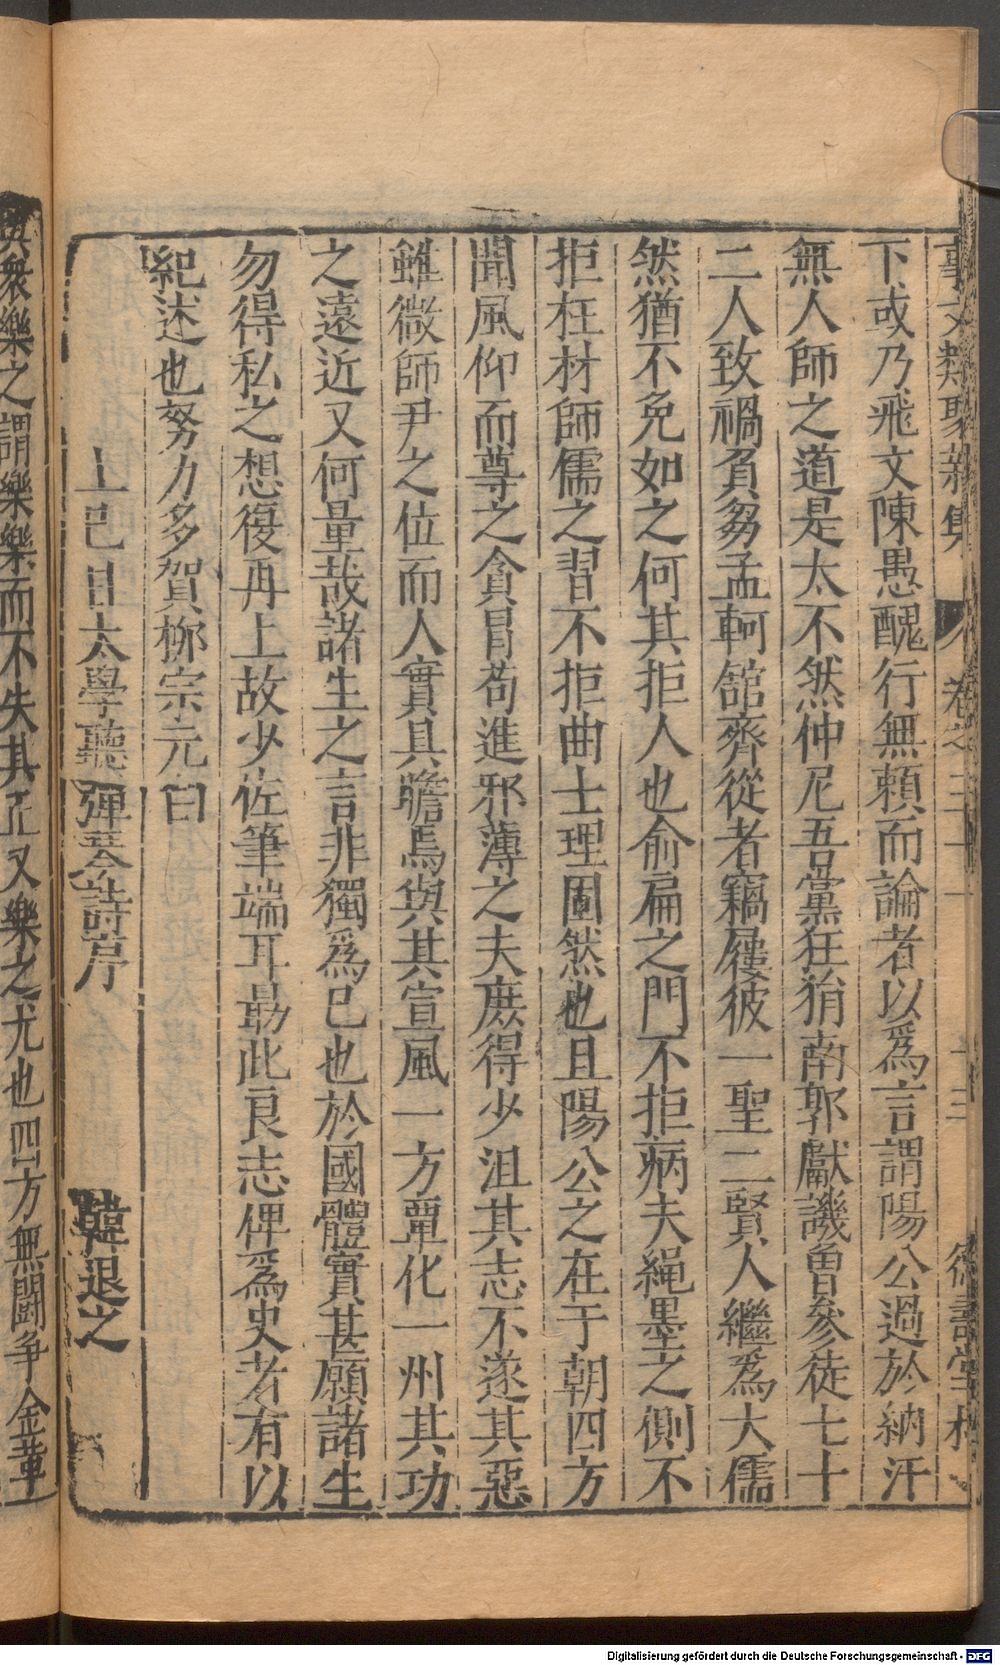 事文類聚新集 卷之三十一 十三 德壽堂梓
下或乃飛文陳愚醜行無賴而論者以爲言謂陽公過於納汙
無人師之道是太不然仲尼吾黨狂狷南郭獻譏曾參徒七十
二人致禍負芻孟軻舘齊從者竊屨彼一聖二賢人繼爲大儒
然猶不免如之何其拒人也俞扁之門不拒病夫繩墨之側不
拒枉材師儒之習不拒曲士理固然也且陽公之在于朝四方
聞風仰而尊之貪冒苟進邪薄之夫庶得少沮其志不遂其惡
雖微師尹之位而人實具瞻焉與其宣風一方覃化一州其功
之遠近又何量哉諸生之言非獨爲已也於國體實甚願諸生
勿得私之想復再上故少佐筆端耳勗此良志俾爲史者有以
紀述也努力多賀柳宗元白
上巳日太學聽彈琴詩序 韓退之
與衆樂之謂樂樂而不失其正又樂之尤也四方無鬪争金革
Digitalisierung gefördert durch die Deutsche Forschungsgemeinschaft - DFG